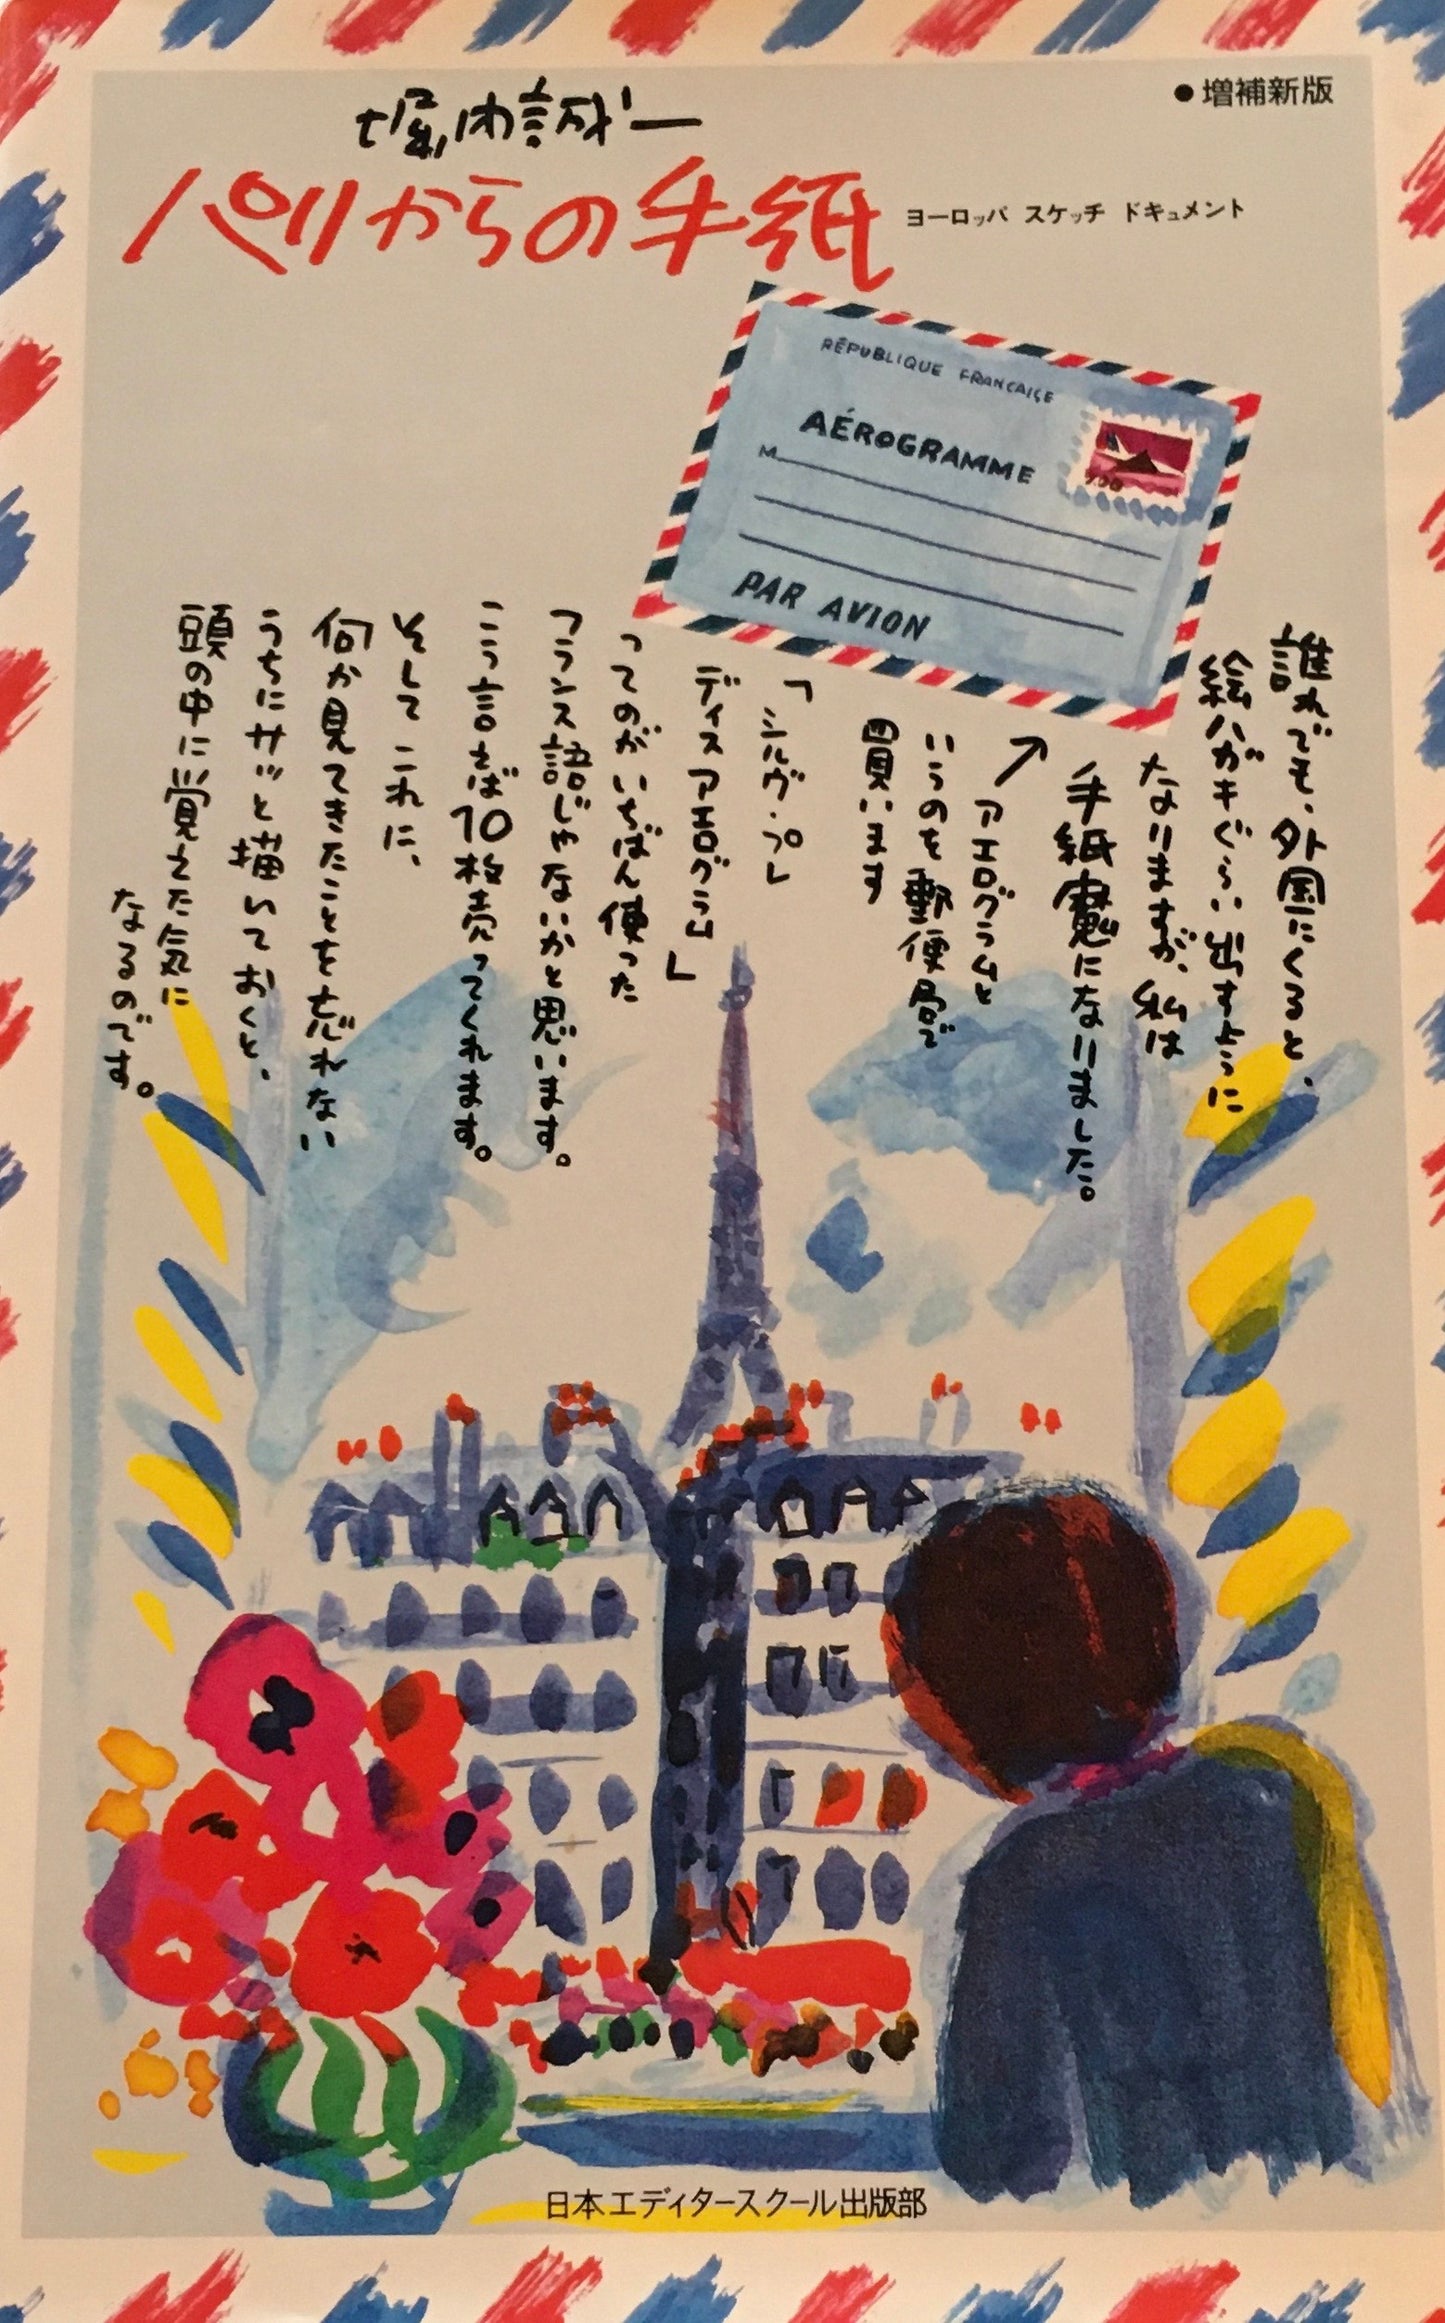 ●増補新版
堀内誠一
パリからの手紙
ヨーロッパ スケッチ ドキュメント
RÉPUBLIQUE FRANÇAISE
AÉROGRAMME
M
PAR AVION
誰れでも、外国にくると、
絵ハガキぐらい出すように
なりますが、私は
手紙魔になりました。
↗アエログラムと
いうのを郵便局で
買います
「シルヴ・プレ
ディス アエログラム」
ってのがいちばん使った
フランス語じゃないかと思います。
こう言えば10枚売ってくれます。
そして これに、
何か見てきたことを忘れない
うちにサッと描いておくと、
頭の中に覚えた気に
なるのです。
日本エディタースクール出版部